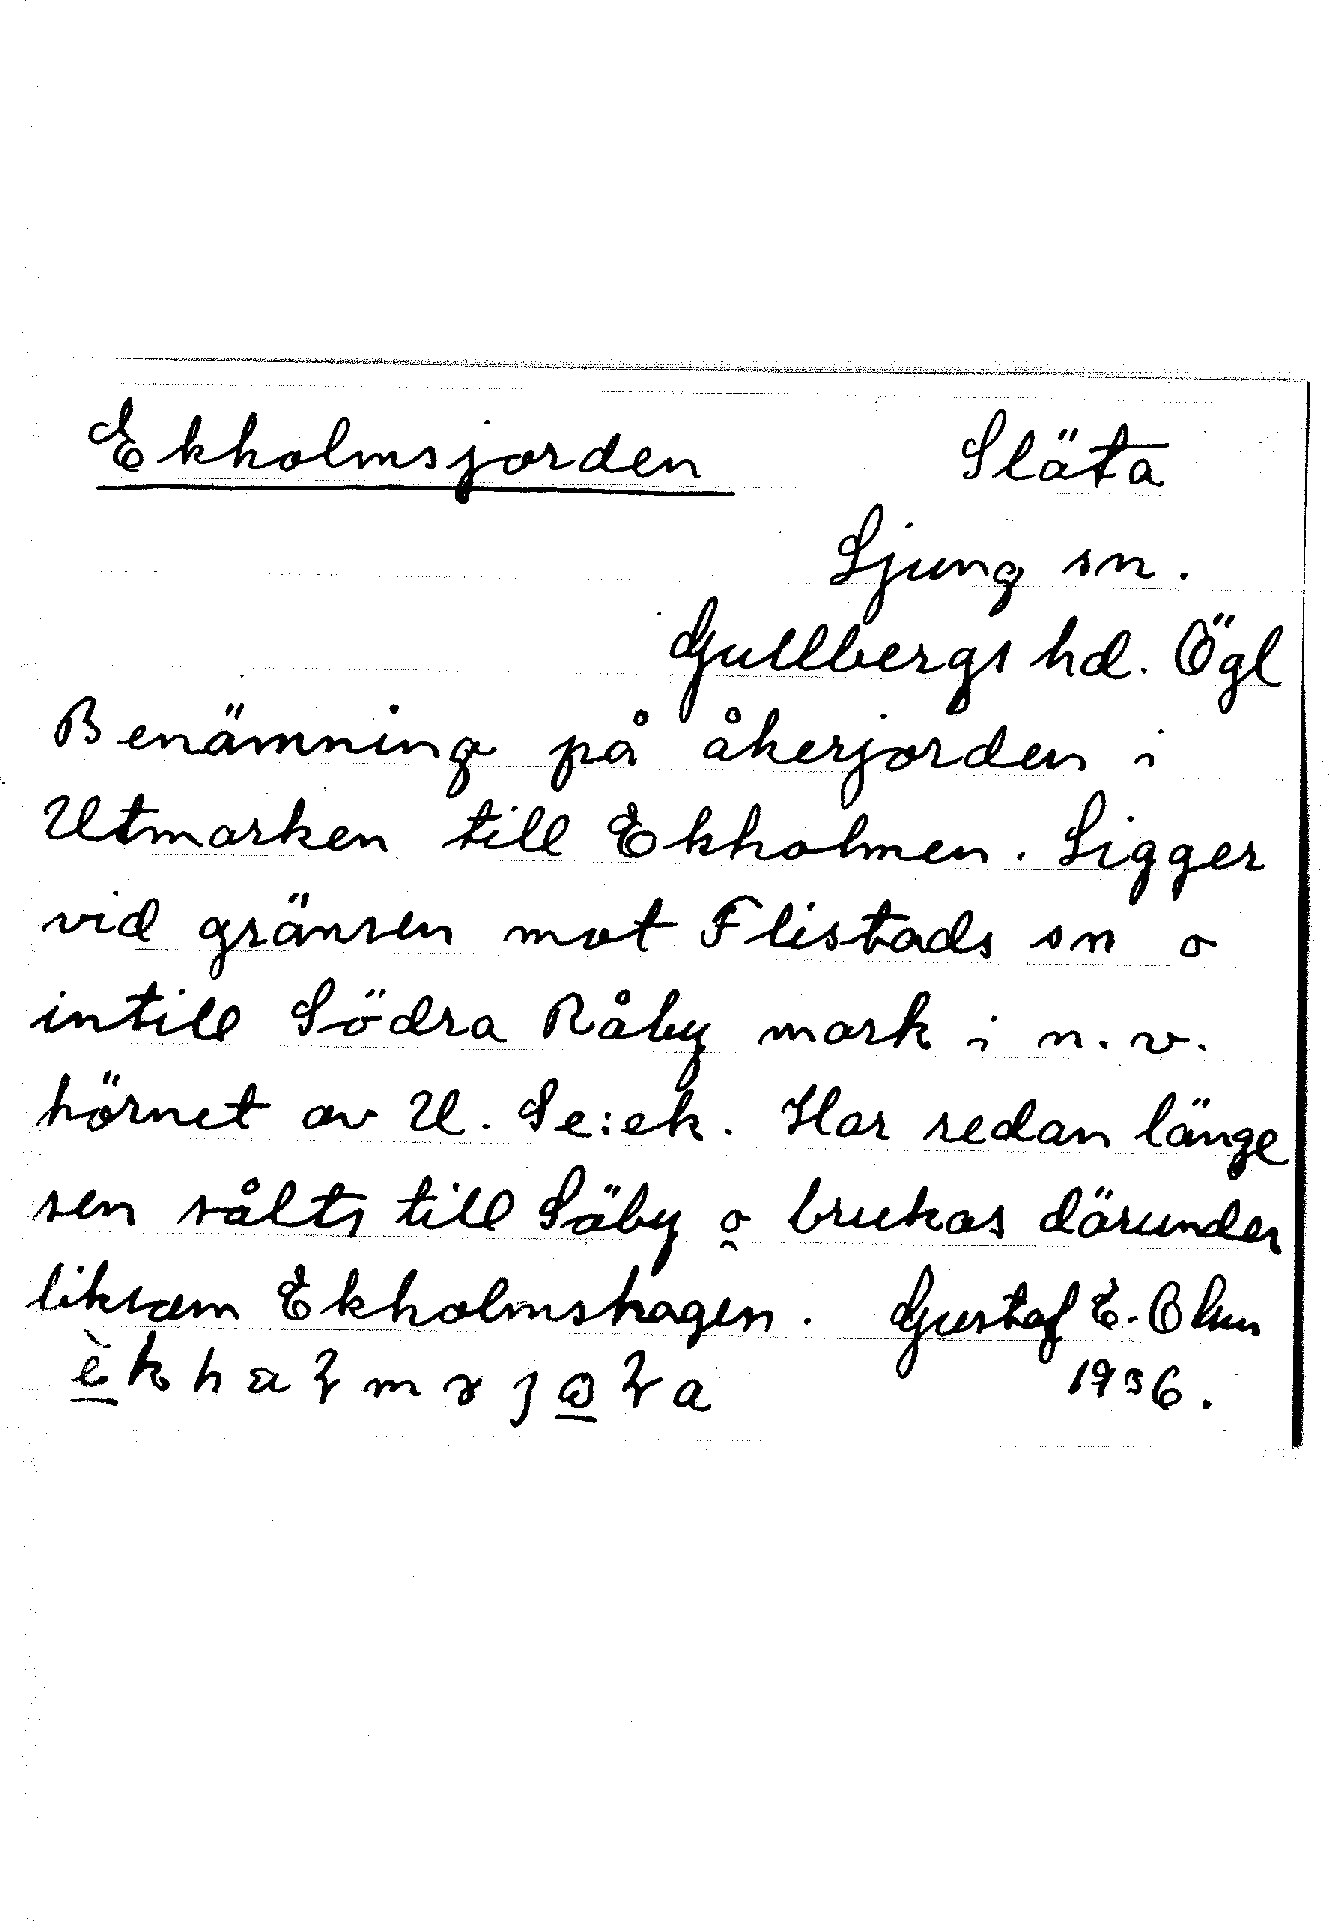 Ekholmsjorden Släta
Ljung sn.
Gullbergs hd. Ögl
Benämning på åkerjorden i
Utmarken till Ekholmen. Ligger
vid gränsen mot Flistads sn o
intill Södra Råby mark i n.v.
hörnet av U. Se: ek. Har redan länge
sen sålts till Säby o brukas därunder
liksom Ekholmshagen. Gustaf E.
1936.